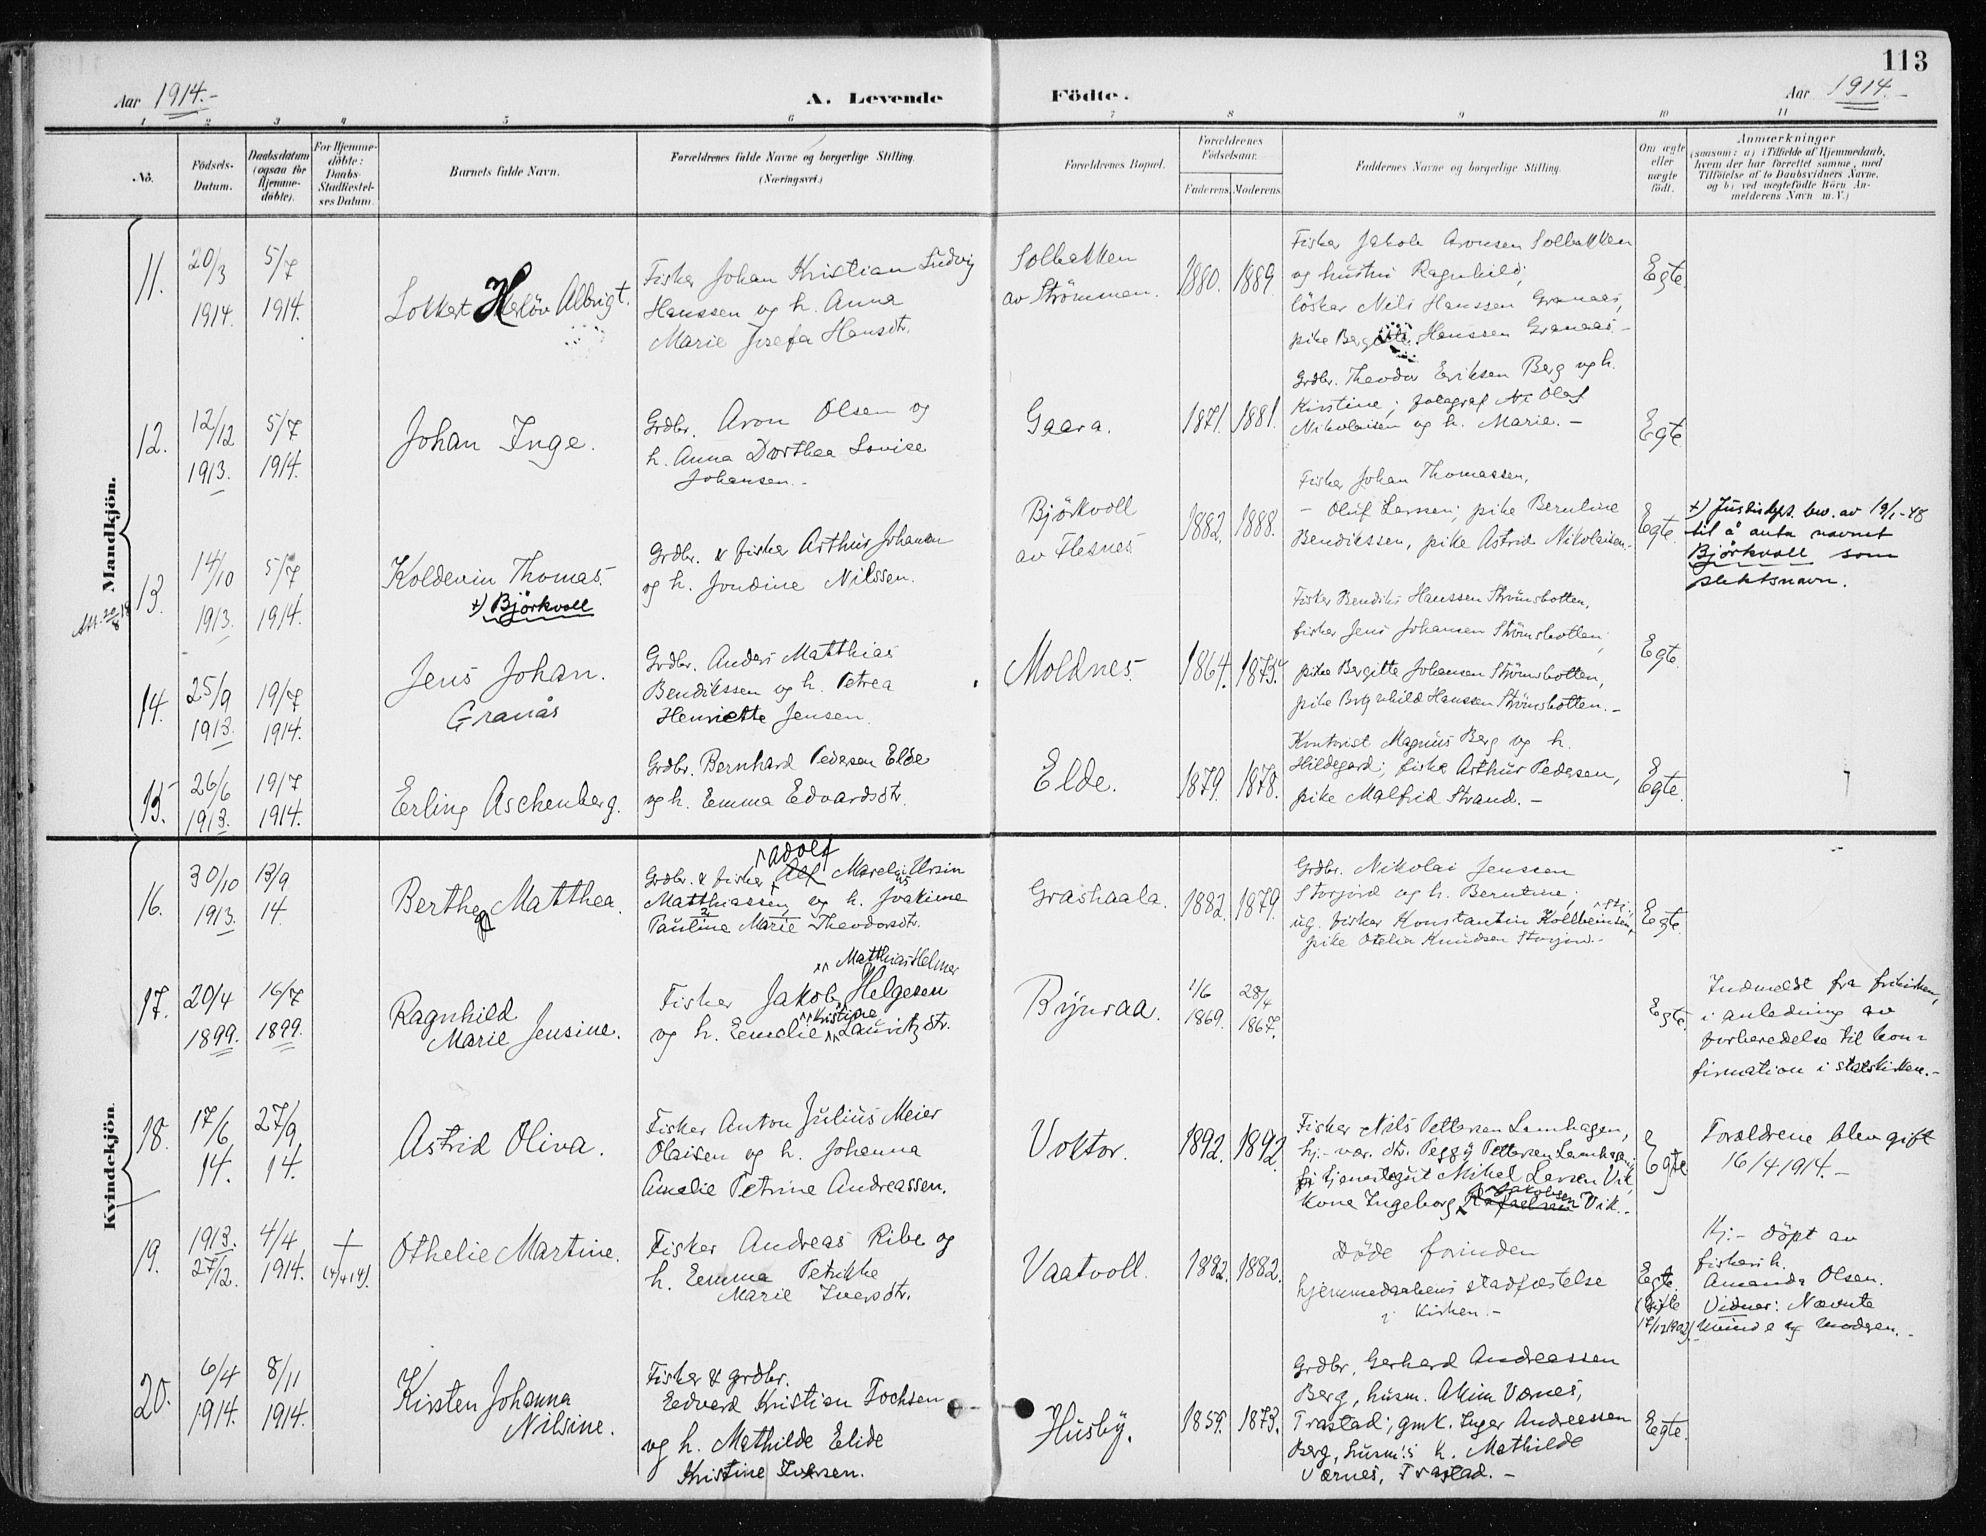 113
Aar 1914.-
A. Levende Födte.
Aar 1914.-
1 2 3 4 5 6 7 8 9 10 11
No.
Födsels-
Datum.
Daabsdatum
(ogsaa for
Hjemme-
döbte).
For Hjemme-
döbte:
Daabs-
Stadfæstel-
ses Datum.
Barnets fulde Navn.
Forældrenes fulde Navne og borgerlige Stilling.
(Næringsvei.)
Forældrenes Bopæl.
Forældrenes
Födselsaar.
Faderens. Moderens.
Faddernes Navne og borgerlige Stilling.
Om ægte
eller
uægte
födt.
Anmærkninger
(saasom: a) i Tilfælde af Hjemmedaab,
hvem der har forrettet samme, med
Tilföielse af to Daabsvidners Navne,
og b) ved uægtefödte Börn An-
melderens Navn m. V.)
Mandkjön.
11.
20/3
1914.
5/7
1914.
Lokkert Herlöv Albrigt.
Fisker Johan Kristian Ludvig
Hanssen og h. Anna
Marie Josefa Hansdtr.
Solbakken
av Strömmen.
1880. 1889.
Fisker Jakob Aronsen Solbakken
og hustru Ragnhild;
löskar Nils Hanssen Granaas,
pike Bergitte Hanssen Granaas.-
Egte.
12.
12/12
1913.
5/7
1914.
Johan Inge.
Grdbr. Aron Olsen og
h. Anna Dorthea Lovise
Johansen.-
Gaara.
1871. 1881.
Grdbr. Theodor Eriksen Berg og h.
Kirstine; fotograf Olaf
Nikolaisen og h. Marie.-
Egte
13.
Att. 20/8
14/10
1913.
5/7
1914.
Koldevin Thomas.
+) Björkvoll
Grdbr. & fisker Arthur Johansen
og h. Jondine Nilssen.
Björkvoll
av Flesnes
1882. 1888.
Fisker Johan Thomassen,
- Oluf Larssen; pike Berntine
Bendikssen, pike Astrid Nikolaisen.
Egte.
+) Justisdpt. bev. av 19/1-48
til å anta navnet
Björkvoll som
slektsnavn.
14.
25/9
1913.
19/7
1914.
Jens Johan.
Granås
Grdbr. Anders Matthias
Bendikssen og h. Petrea
Henriette Jensen.
Moldnes.
1864. 1873.
Fisker Bendiks Hanssen Strömsbotten,
fisker Jens Johansen Strömsbotten,
pike Bergitte Johansen Strömsbotten,
pike Borghild Hanssen Strömsbotten.-
Egte.
15.
26/6
1913.
19/7
1914.
Erling Aschenberg.
Grdbr. Bernhard Pedersen Elde
og h. Emma Edvardsdtr.
Elde.
1879. 1878.
Kontorist Magnus Berg og h.
Hildegard; fisker Arthur Pedersen,
pike Malfrid Strand.-
Egte.
Kvindekjön.
16.
30/10
1913.
13/9
14.
Berthe Matthea.
adolf
Grdbr. & fisker Alf Marelius Ursin
Matthiassen og h. Joakime
Pauline Marie Theodorsdtr.
Grashaala.
1882. 1879.
Grdbr. Nikolai Jenssen
Storjord og h. Berntine;
ug. fisker Konstantin Kolbeinsen,
pike Otelie Knudsen Storjord.-
Egte.
17.
20/4
1899.
16/7
1899.
Ragnhild
Marie Jensine.
Matthias Helmer
Fisker Jakob Helgesen
Kristine
og h. Emelie Lauritzdtr.
Rynraa.
1/6
1869.
28/4
1867.
Egte.
Indmeldt fra frikirken,
i anledning av
forberedelse til kon-
firmation i statskirken.-
18.
17/6
14.
27/9
14.
Astrid Oliva.
Fisker Anton Julius Meier
Olaisen og h. Johanna
Amalie Petrine Andreassen.
Voktor.
1892. 1892.
Fisker Nils Pettersen Lamhagen,
hj.-vær. dtr. Peggy Pettersen Lamhagen;
tjenestegut Mikal Larsen Vik,
Jakobsen
kone Ingeborg Rafaelsen Vik.-
Egte
Forældrene blev gift
16/4 1914.-
19.
1913.
27/12.
4/4
1914.
+
(4/4 14).
Othelie Martine.
Fisker Andreas Ribe og
h. Emma Petrikke
Marie Iversdtr.
Vaatvoll.
1882. 1882.
Döde forinden
hjemmedaabens stadfæstelse
i kirken.-
Egte.
(Gifte
17/12 1902).
Hj.- döpt av
fiskerih.
Amanda Olsen.
Vidner: Nævnte
og moderen.-
20.
6/4
1914.
8/11
1914.
Kirsten Johanna
Nilsine.
Fisker & grdbr.
Edvard Kristian Tochsen
og h. Mathilde Elide
Kristine Iversen.
Husby.
1859. 1873.
Grdbr. Gerhard Andreassen
Berg, husm. Akim Værnes,
Trastad; gmk. Inger Andreassen
Berg, husm's h. Mathilde
Værnes, Trastad.-
Egte.